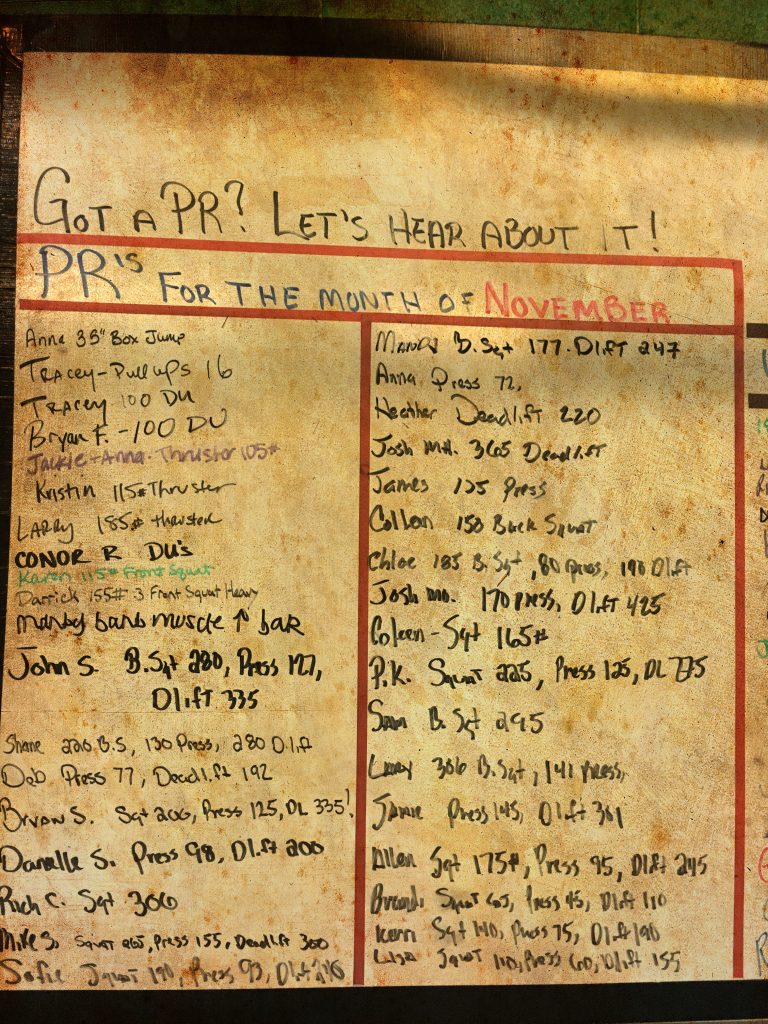 GOT A PR? LET'S HEAR ABOUT IT!
PR'S FOR THE MONTH OF NOVEMBER
Anna 35" Box Jump
TRACEY-Pull ups 16
TRACEY 100 DU
Bryan F. -100 DU
Jackie + Anna - Thruster 105#
Kristin 115# Thruster
LARRY 185# thruster
CONOR R DU's
Karen 115# Front Squat
Darrick 155# 3 Front Squat Heavy
muscle ↑ bar
John S. B.Sqt 280, Press 127,
Dlift 335
Shane 220 B.S, 130 Press, 280 Dlift
Deb Press 77, Deadlift 192
Bryan S. Sqt 200, Press 125, DL 335!
Danelle S. Press 98, Dlift 200
Rich C. Sqt 306
Mike S. Squat 265, Press 155, Deadlift 300
Sofie Squat 190, Press 93, Dlift
B.Sqt 177. Dlift 247
Anna Press 72,
Heather Deadlift 220
Josh 365 Deadlift
James 125 Press
150 Back Squat
Chloe 185 B.Sqt, 80 press, 190 Dlift
Josh mo. 170 press, Dlift 425
Coleen - Sqt 165#
P.K. Squat 225, Press 125, DL
Sam B. Sqt 295
306 B.Sqt, 141 press,
Jamie Press 145, Dlift 301
Allen Sqt 175#, Press 95, Dlift 245
Brandi Squat Press 45, Dlift 110
Kerri Sqt 140, Press 75, Dlift 190
Lisa Squat 110, Press 60, Dlift 155